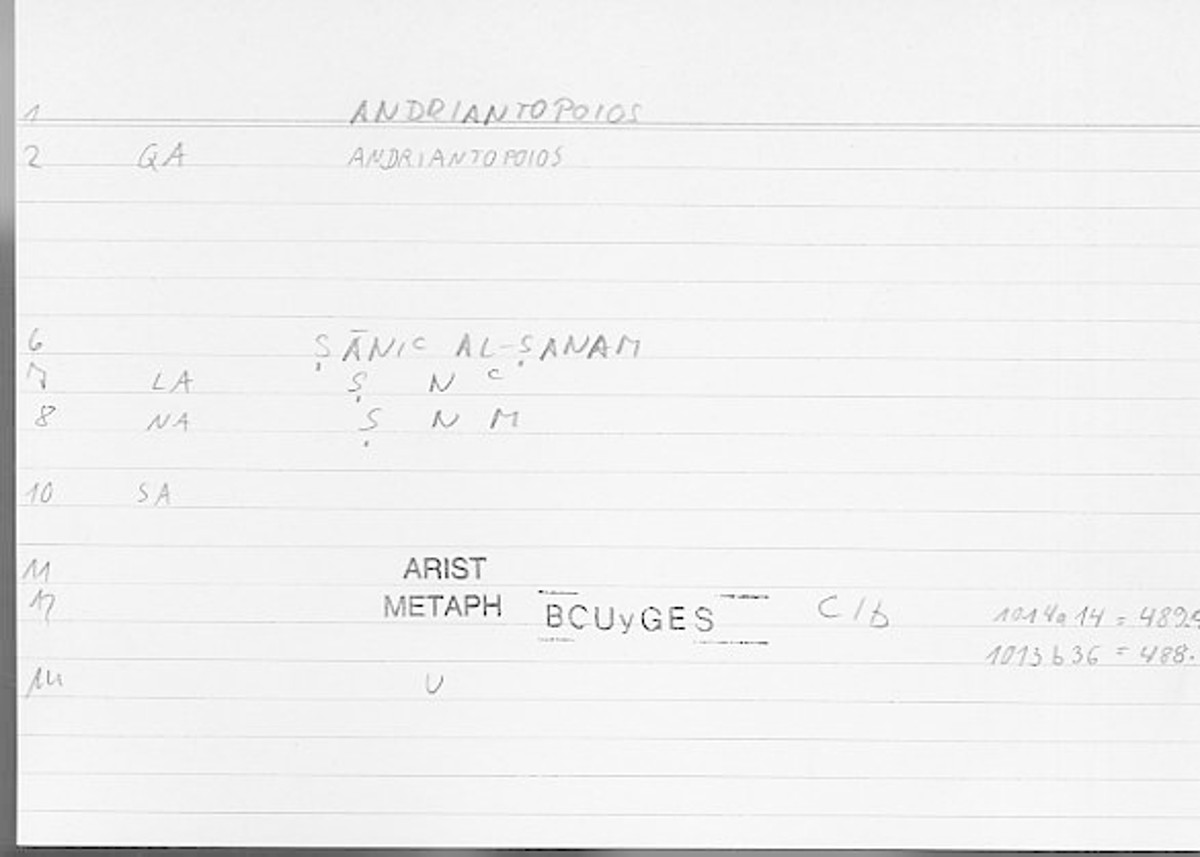 1 ANDRIANTOPOIOS
2 GA ANDRIANTOPOIOS
6 ṢĀNIC AL-ṢANAM
7 LA Ṣ N C
8 NA Ṣ N M
10 SA
11 ARIST
12 METAPH BCUyGES C1b 1014a14 = 489.
1013b36 = 488.
14 U